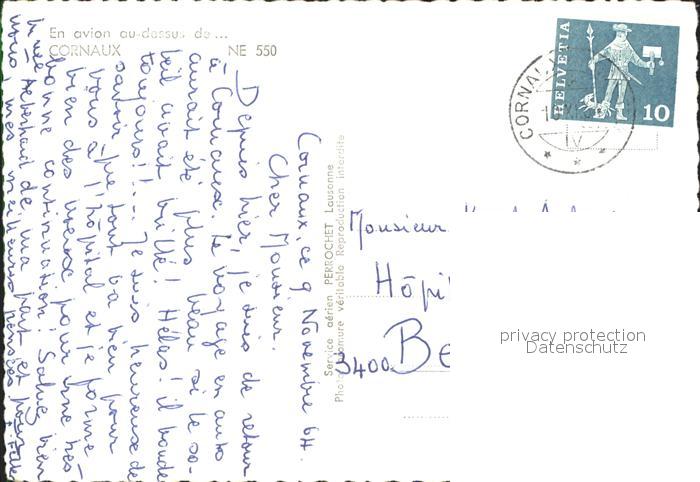 En avion au-dessus de ...
CORNAUX NE 550
Cornaux, ce 9 Novembre 64.
Cher Monsieur,
Depuis hier, je suis de retour
à Cornaux. Le voyage en auto
aurait été plus beau si le so-
leil avait brillé! Hélas! il boude
toujours!... Je suis heureuse de
savoir que tout va bien pour
vous à l'hôpital et je forme
bien des voeux pour une très
bonne continuation. Saluez bien
de ma part et pour
vous, mes meilleures pensées
Service aérien PERROCHET Lausanne
Photo véritable Reproduction interdite
HELVETIA
10
CORNAU
Monsieur
Hôpi
3400 Be
privacy protection
Datenschutz